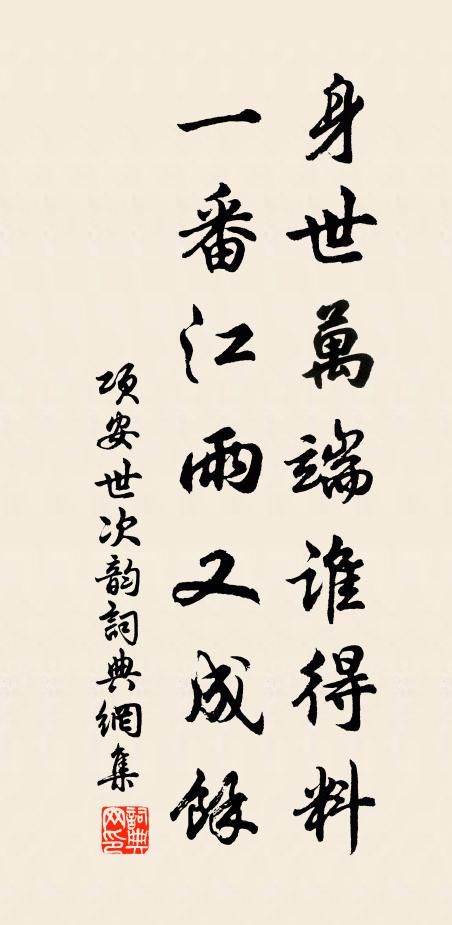 身世萬端誰得料
一番江雨又成餘
項安世次韵詞典網集
詞典網印